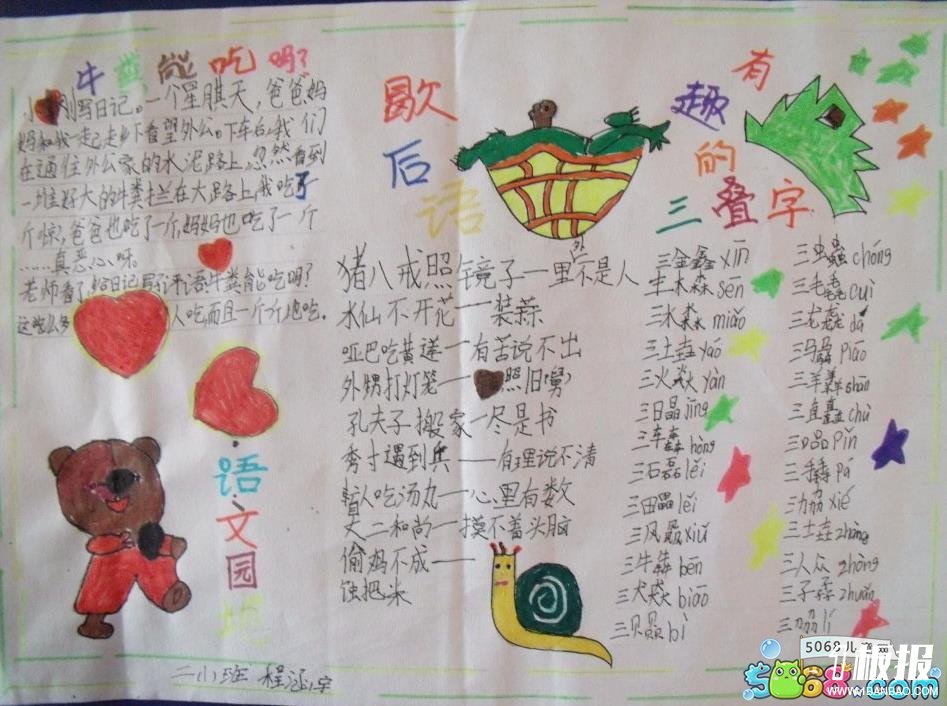 牛粪能吃吗？
小 刚写日记。一个星期天，爸爸妈
妈和我一起走乡下看望外公。下车后我们
在通往外公家的水泥路上，忽然看到
一堆好大的牛粪拦在大路上，我吃了
个惊，爸爸也吃了一个，妈妈也吃了一个
……真恶心呀。
老师看了 日记 写了评语：牛粪能吃吗？
这吃么多 人吃，而且一个个地吃。
语文园地
二小班 程
歇后语
猪八戒照镜子一里外不是人
水仙不开花一装蒜
哑巴吃黄莲一有苦说不出
外甥打灯笼一 照旧（舅）
孔夫子搬家一尽是书
秀才遇到兵——有理说不清
瞎人吃汤丸一心里有数
丈二和尚一摸不着头脑
偷鸡不成——
蚀把米
有趣的三叠字
三金鑫 xīn
三木森 sēn
三水淼 miǎo
三土垚 yáo
三火焱 yàn
三日晶 jīng
三车轟 hōng
三石磊 lěi
三田畾 lěi
三风飍 xiū
三牛犇 bēn
三犬猋 biāo
三贝贔 bì
三虫蟲 chóng
三毛毳 cuì
三龙龘 dá
三马骉 piāo
三羊羴 shān
三直矗 chù
三口品 Pǐn
三力劦 xié
三土垚 zhàng
三人众 zhòng
三子孨 zhuǎn
三刕 lí
5068儿童网
5068.com
板报
WWW.1BANBAO.COM